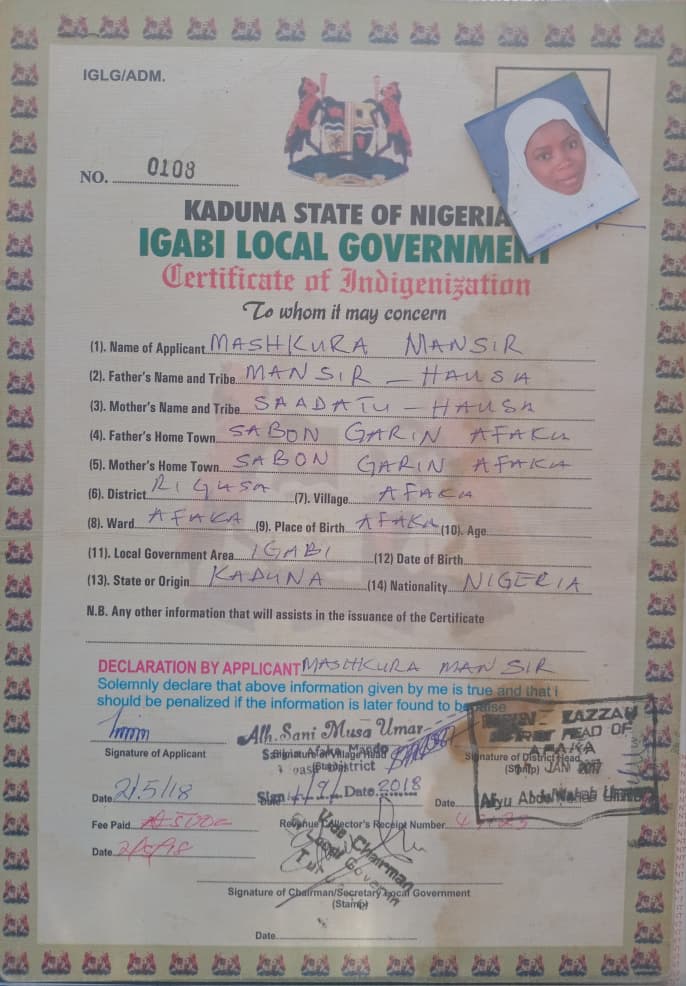 IGLG/ADM.
NO. 0108
KADUNA STATE OF NIGERIA
IGABI LOCAL GOVERNMENT
Certificate of Indigenization
To whom it may concern
(1). Name of Applicant MASHKURA MANSIR
(2). Father's Name and Tribe MANSIR - HAUSA
(3). Mother's Name and Tribe SAADATU - HAUSA
(4). Father's Home Town SABON GARIN AFAKA
(5). Mother's Home Town SABON GARIN AFAKA
(6). District RIGASA (7). Village AFAKA
(8). Ward AFAKA (9). Place of Birth AFAKA (10). Age
(11). Local Government Area IGABI (12) Date of Birth
(13). State or Origin KADUNA (14) Nationality NIGERIA
N.B. Any other information that will assists in the issuance of the Certificate
DECLARATION BY APPLICANT MASHKURA MANSIR
Solemnly declare that above information given by me is true and that i
should be penalized if the information is later found to be false
Alh. Sani Musa Umar
Signature of Applicant
Signature of Village Head
(Stamp)
District
Signature of District Head
(Stamp)
ZAZZAU
DISTRICT HEAD OF
AFAKA
JAN 2017
Date 2/5/18
Sign Date 2018
Date
Fee Paid
Revenue Collector's Receipt Number
Date
Vice Chairman
Signature of Chairman/Secretary Local Government
(Stamp)
Date